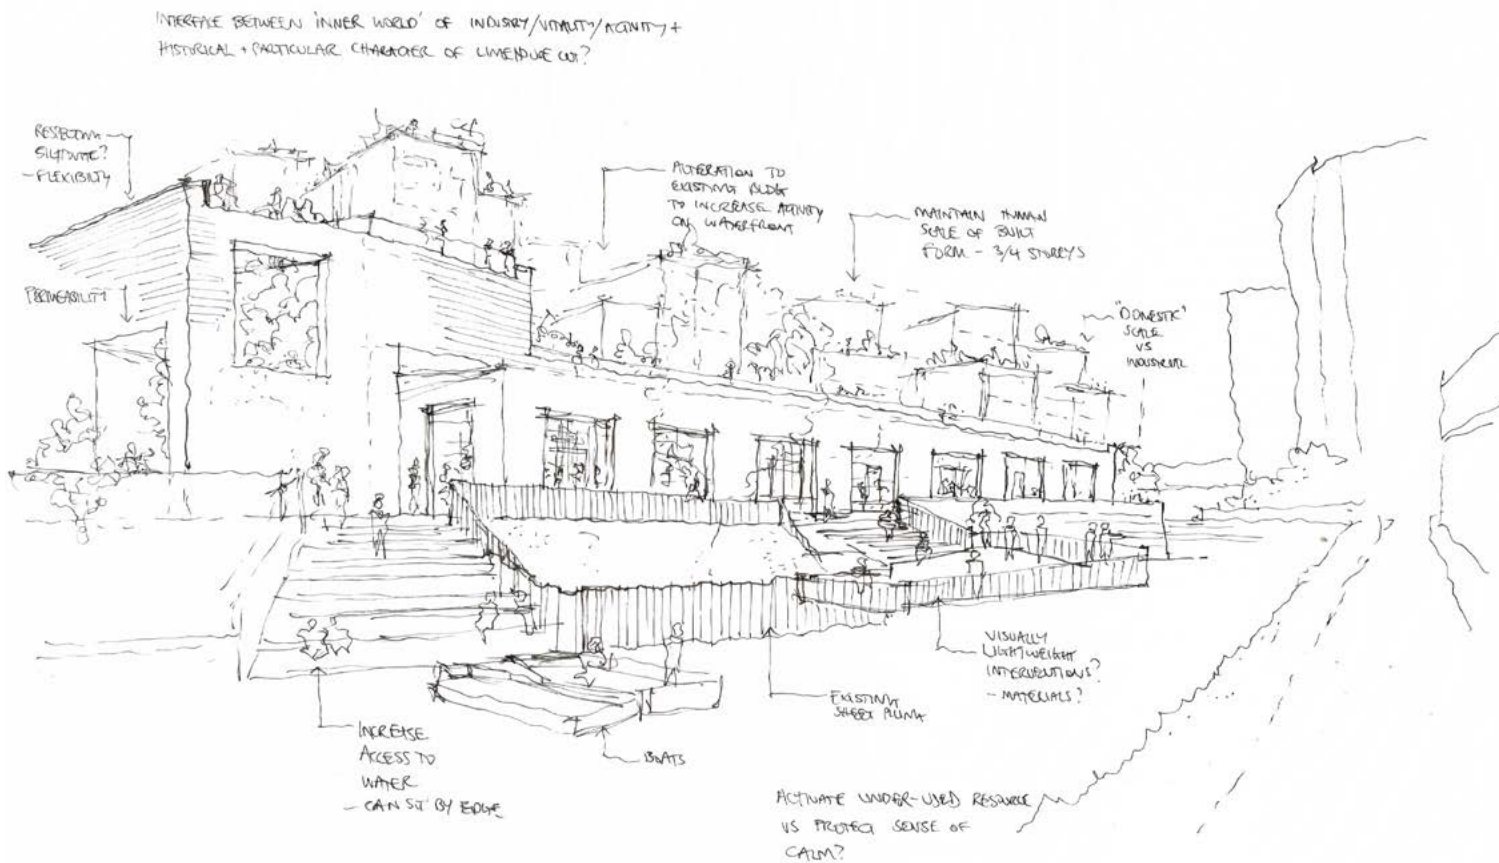 INTERFACE BETWEEN 'INNER WORLD' OF INDUSTRY/VITALITY/ACTIVITY +
HISTORICAL + PARTICULAR CHARACTER OF LIMEHOUSE CUT?
RESPECTING
SILHOUETTE?
- FLEXIBILITY
PERMEABILITY
ALTERATION TO
EXISTING BLDG
TO INCREASE ACTIVITY
ON WATERFRONT
MAINTAIN HUMAN
SCALE OF BUILT
FORM - 3/4 STOREYS
"DOMESTIC"
SCALE
VS
INDUSTRIAL
VISUALLY
LIGHTWEIGHT
INTERVENTIONS?
- MATERIALS?
EXISTING
SHEET PILING
BOATS
INCREASE
ACCESS TO
WATER
- CAN SIT BY EDGE
ACTIVATE UNDER-USED RESOURCE
VS PROTECT SENSE OF
CALM?